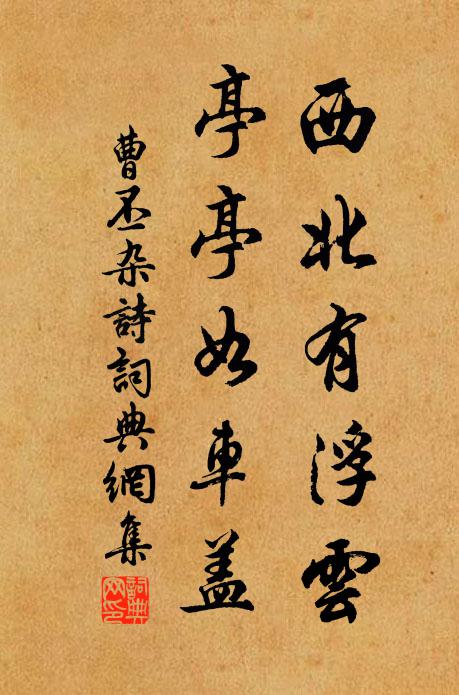 西北有浮雲
亭亭如車盖
曹丕杂詩詞典網集
詞典
网印